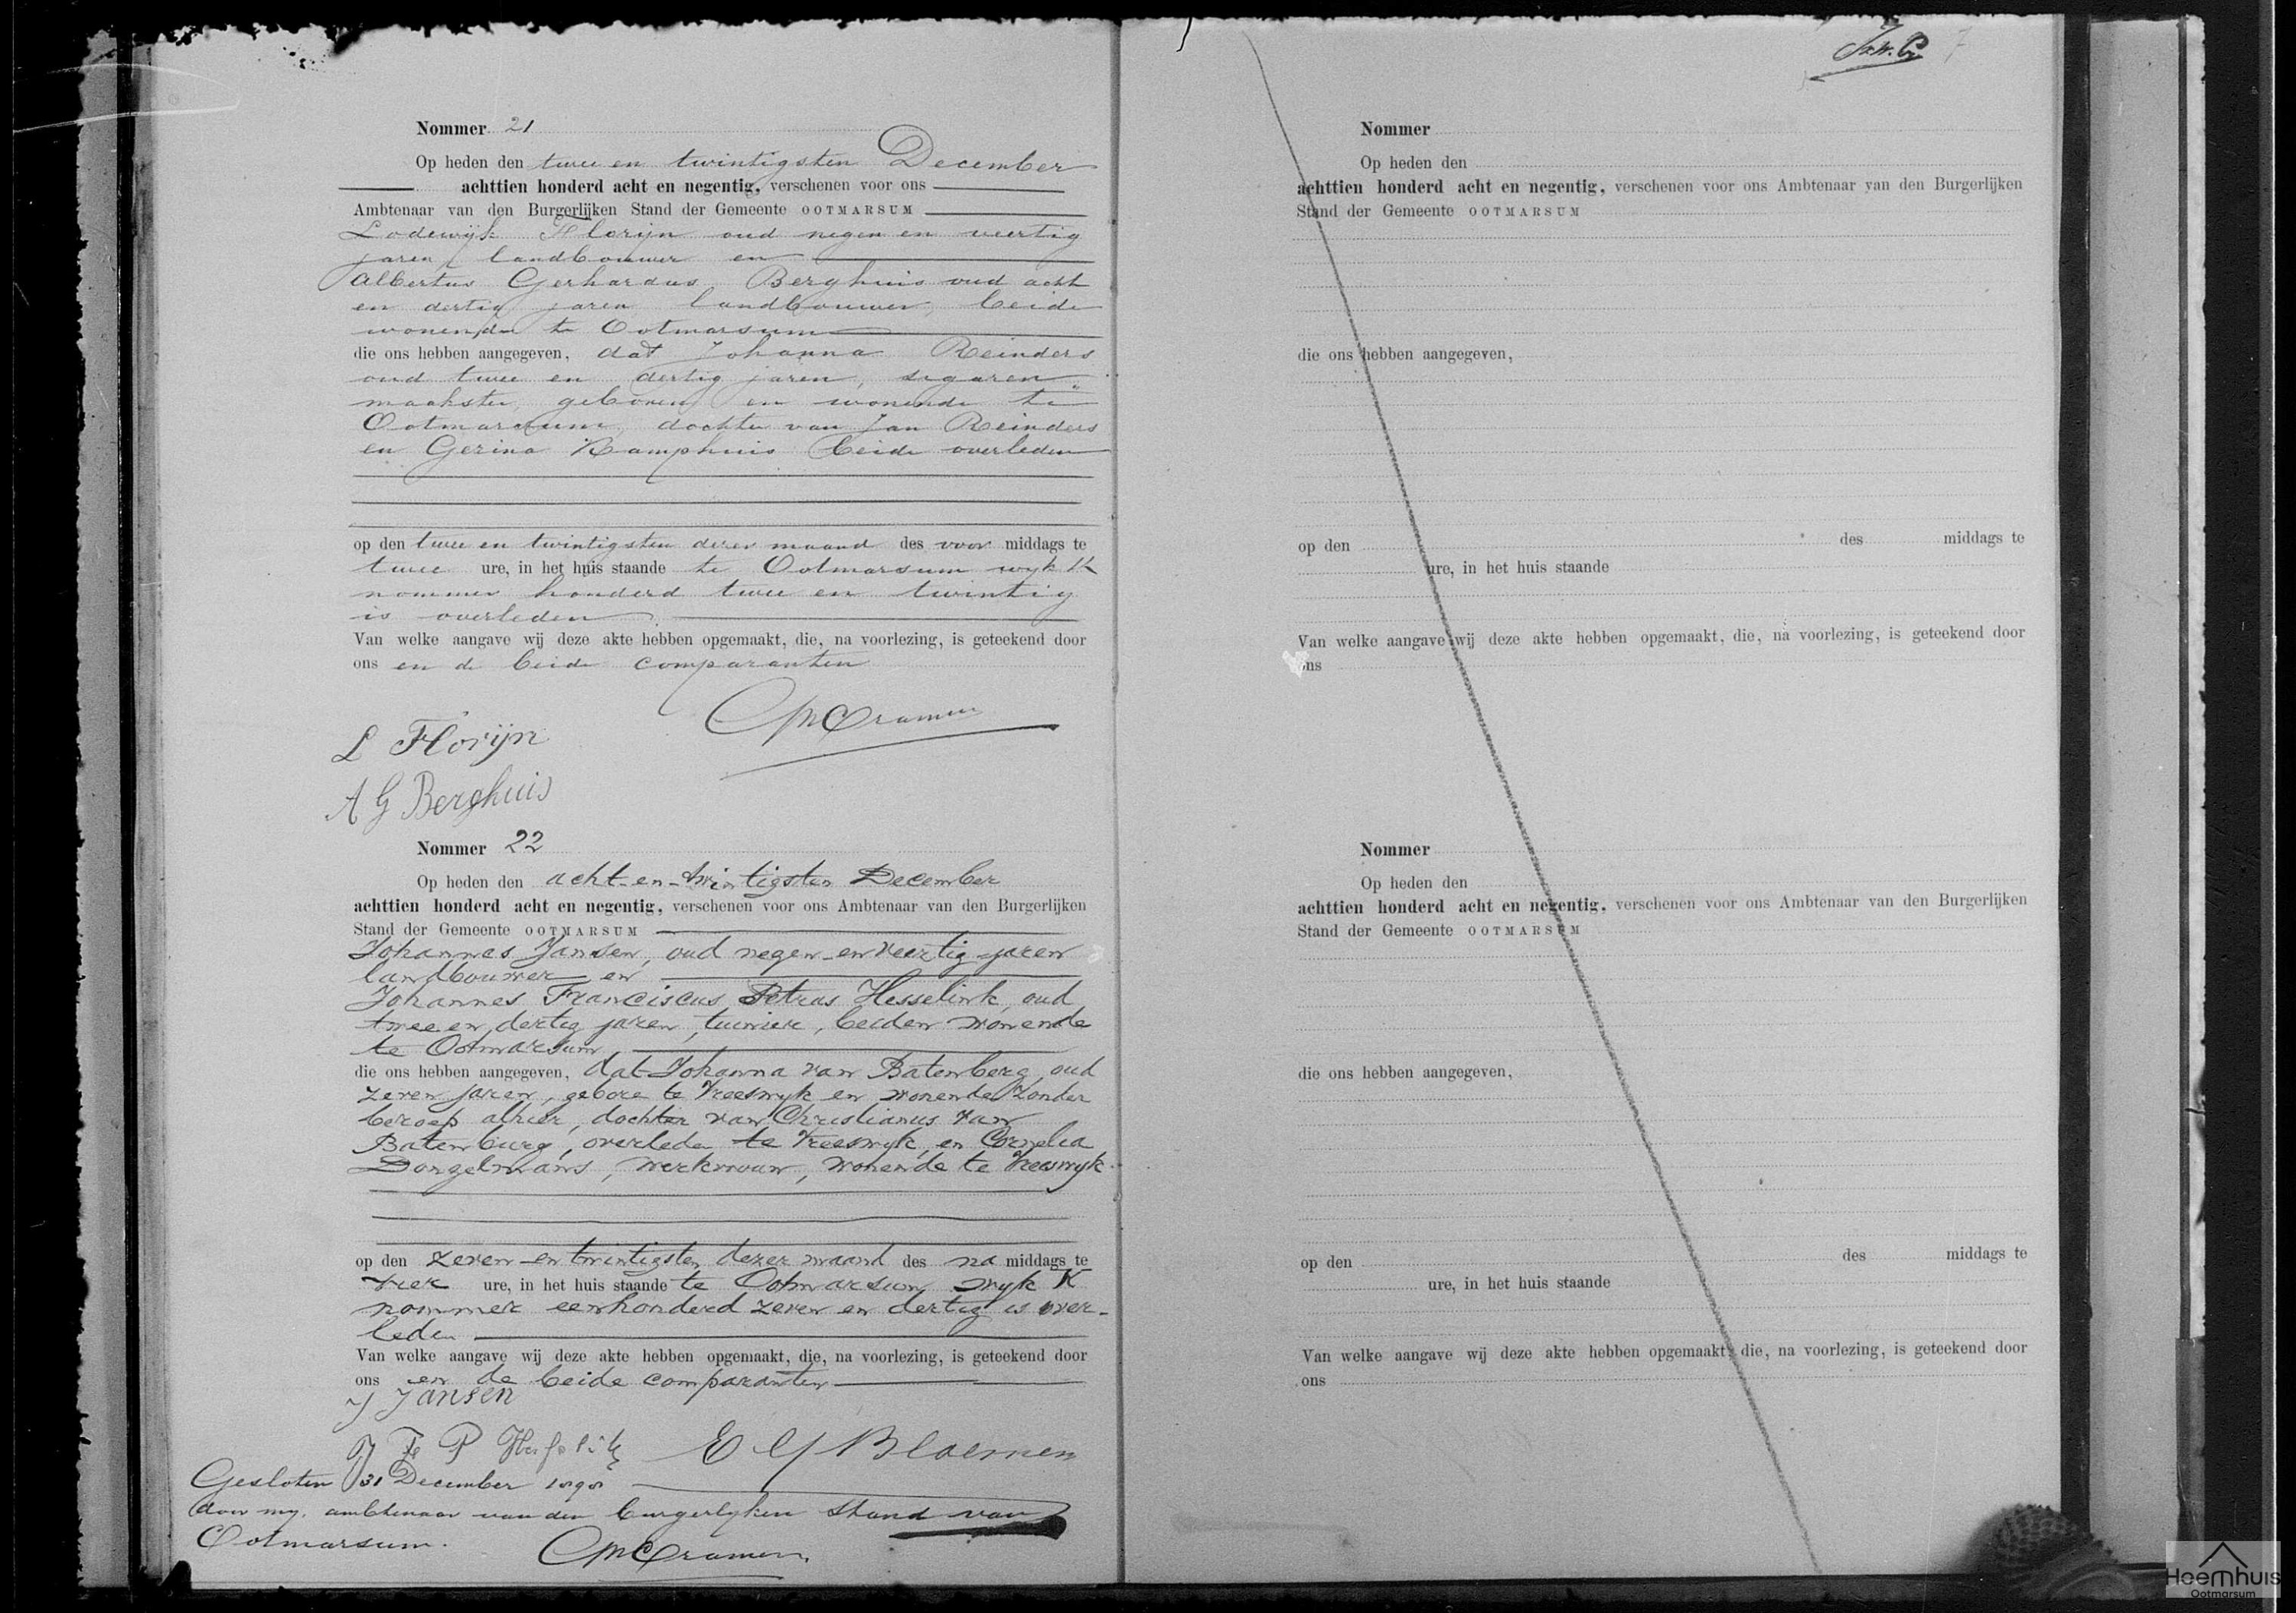 Nommer 21
Op heden den twee en twintigsten December
achttien honderd acht en negentig, verschenen voor ons
Ambtenaar van den Burgerlijken Stand der Gemeente OOTMARSUM
Lodewijk Florijn oud negen en veertig
jaren landbouwer en
Albertus Gerhardus Berghuis oud acht
en dertig jaren, landbouwer, beide
wonende te Ootmarsum
die ons hebben aangegeven, dat Johanna Reinders
oud twee en dertig jaren, sigaren
maakster, geboren en wonende te
Ootmarsum, dochter van Jan Reinders
en Gerina Kamphuis beide overleden
op den twee en twintigsten dezer maand des voor middags te
twee ure, in het huis staande te Ootmarsum wyk K
nommer honderd twee en twintig
is overleden
Van welke aangave wij deze akte hebben opgemaakt, die, na voorlezing, is geteekend door
ons en de beide comparanten
Cramer
L Florijn
A G Berghuis
Nommer 22
Op heden den acht-en-twintigsten December
achttien honderd acht en negentig, verschenen voor ons Ambtenaar van den Burgerlijken
Stand der Gemeente OOTMARSUM
Johannes Jansen, oud negen-en veertig jaren
landbouwer en
Johannes Franciscus Petrus Hesselink, oud
twee en dertig jaren, tuinier, beiden wonende
te Ootmarsum
die ons hebben aangegeven, dat Johanna van Batenberg, oud
zeven jaren, gebore te Vreeswyk en wonende zonder
beroep alhier, dochter van Christianus van
Batenburg, overleden te Vreeswyk, en Cornelia
Dongelmans, werkvrouw, wonende te Vreeswyk
op den zeven-en twintigsten dezer maand des na middags te
vier ure, in het huis staande te Ootmarsum wyk K
nommer eenhonderd zeven en dertig is over-
leden
Van welke aangave wij deze akte hebben opgemaakt, die, na voorlezing, is geteekend door
ons en de beide comparanten
J Jansen
J F P
E Bloemen
Gesloten 31 December 1898
door my, ambtenaar van den burgerlyken stand van
Ootmarsum.
Cramer
7
Nommer
Op heden den
achttien honderd acht en negentig, verschenen voor ons Ambtenaar van den Burgerlijken
Stand der Gemeente OOTMARSUM
die ons hebben aangegeven,
op den des middags te
ure, in het huis staande
Van welke aangave wij deze akte hebben opgemaakt, die, na voorlezing, is geteekend door
ons
Nommer
Op heden den
achttien honderd acht en negentig, verschenen voor ons Ambtenaar van den Burgerlijken
Stand der Gemeente OOTMARSUM
die ons hebben aangegeven,
op den des middags te
ure, in het huis staande
Van welke aangave wij deze akte hebben opgemaakt, die, na voorlezing, is geteekend door
ons
Heemhuis
Ootmarsum